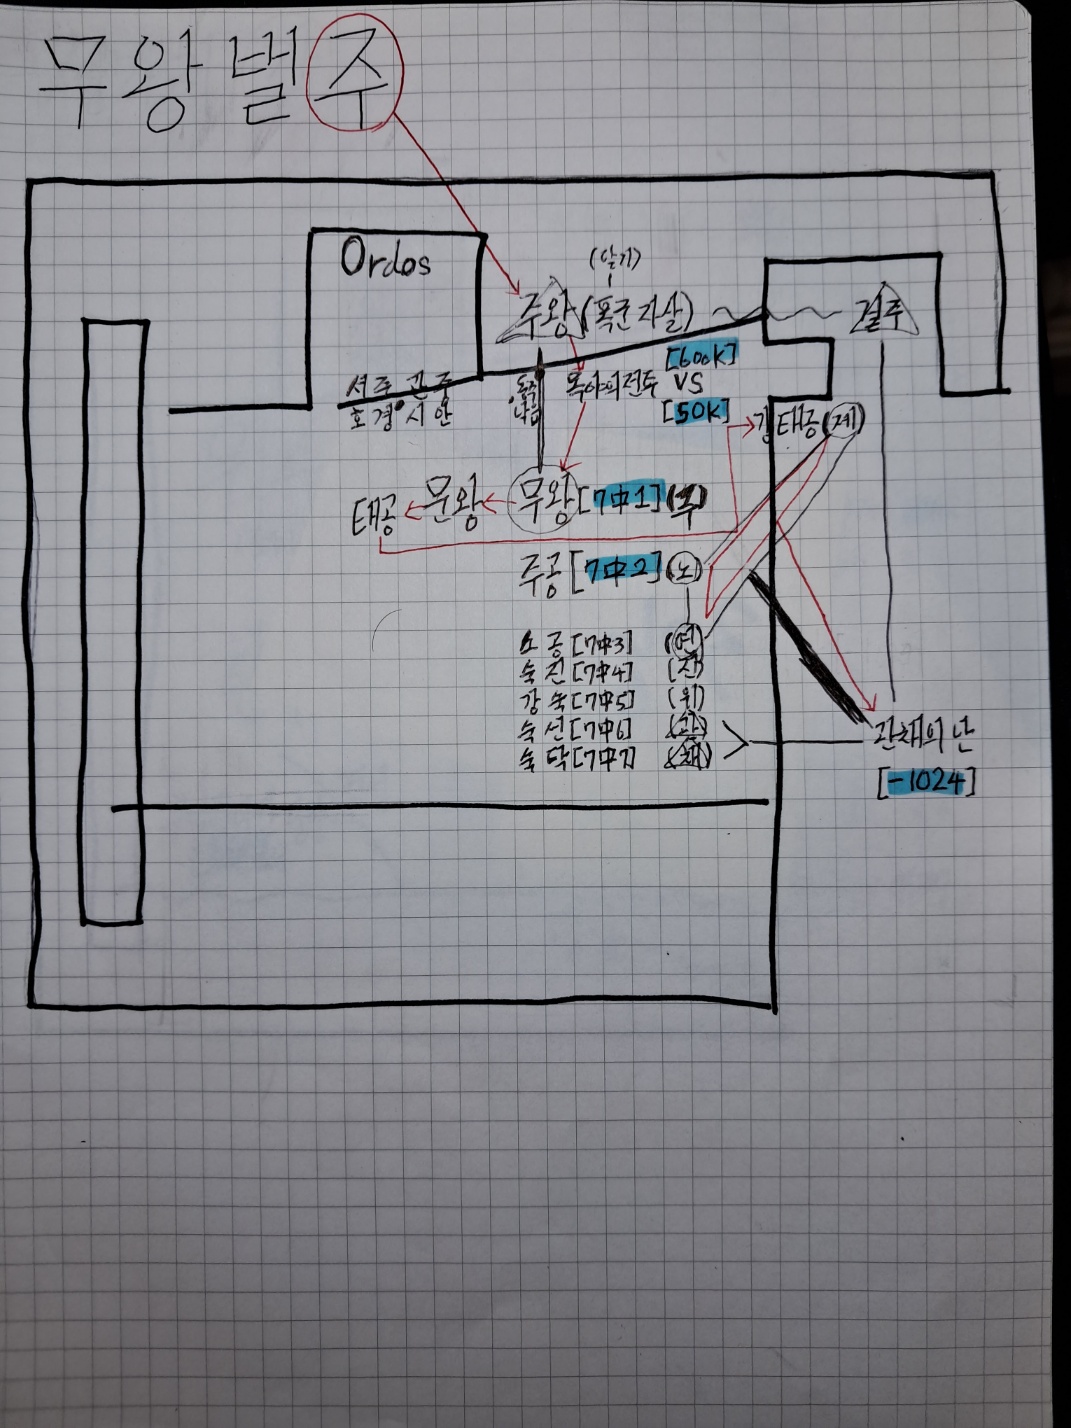 무왕벌주
Ordos
(달기)
주왕(폭군자살)
걸주
[600K]
서주 관중
호경 시안
목야의전투 VS
[50K]
강태공(제)
태공 문왕 무왕[7中1](주)
주공[7中2](노)
소공[7中3] (연)
숙진[7中4] (진)
강숙[7中5] (위)
숙선[7中6] (관)
숙탁[7中7] (채)
관채의난
[-1024]